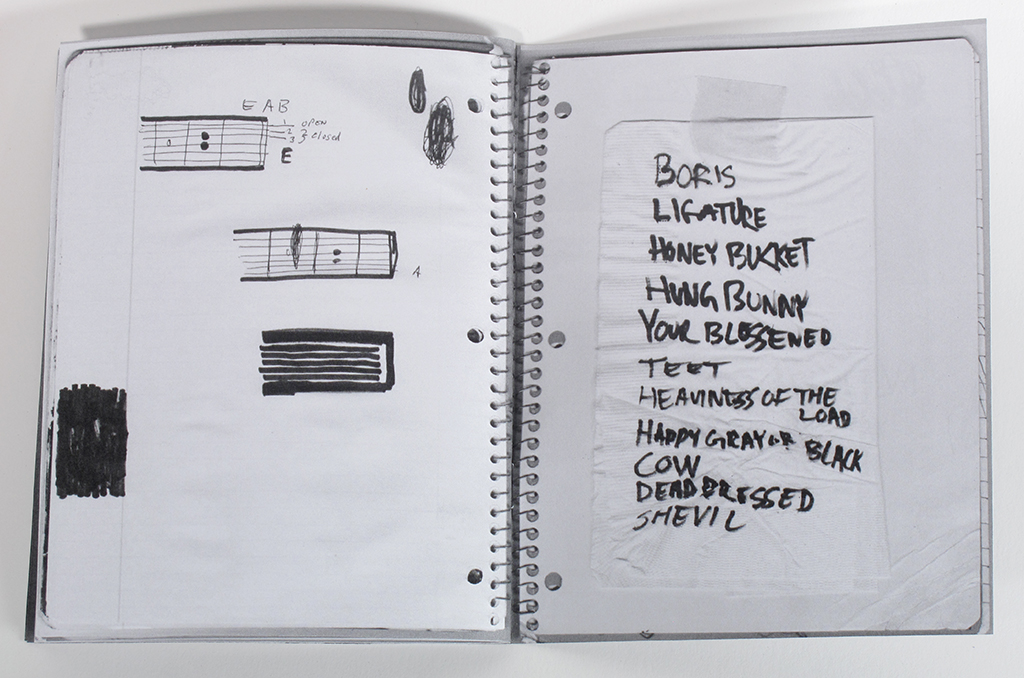 E A B
1 OPEN
2
3 closed
E
A
BORIS
LIGATURE
HONEY BUCKET
HUNG BUNNY
YOUR BLESSENED
TEET
HEAVINESS OF THE
LOAD
HAPPY GRAY OR BLACK
COW
DEAD DRESSED
SHEVIL